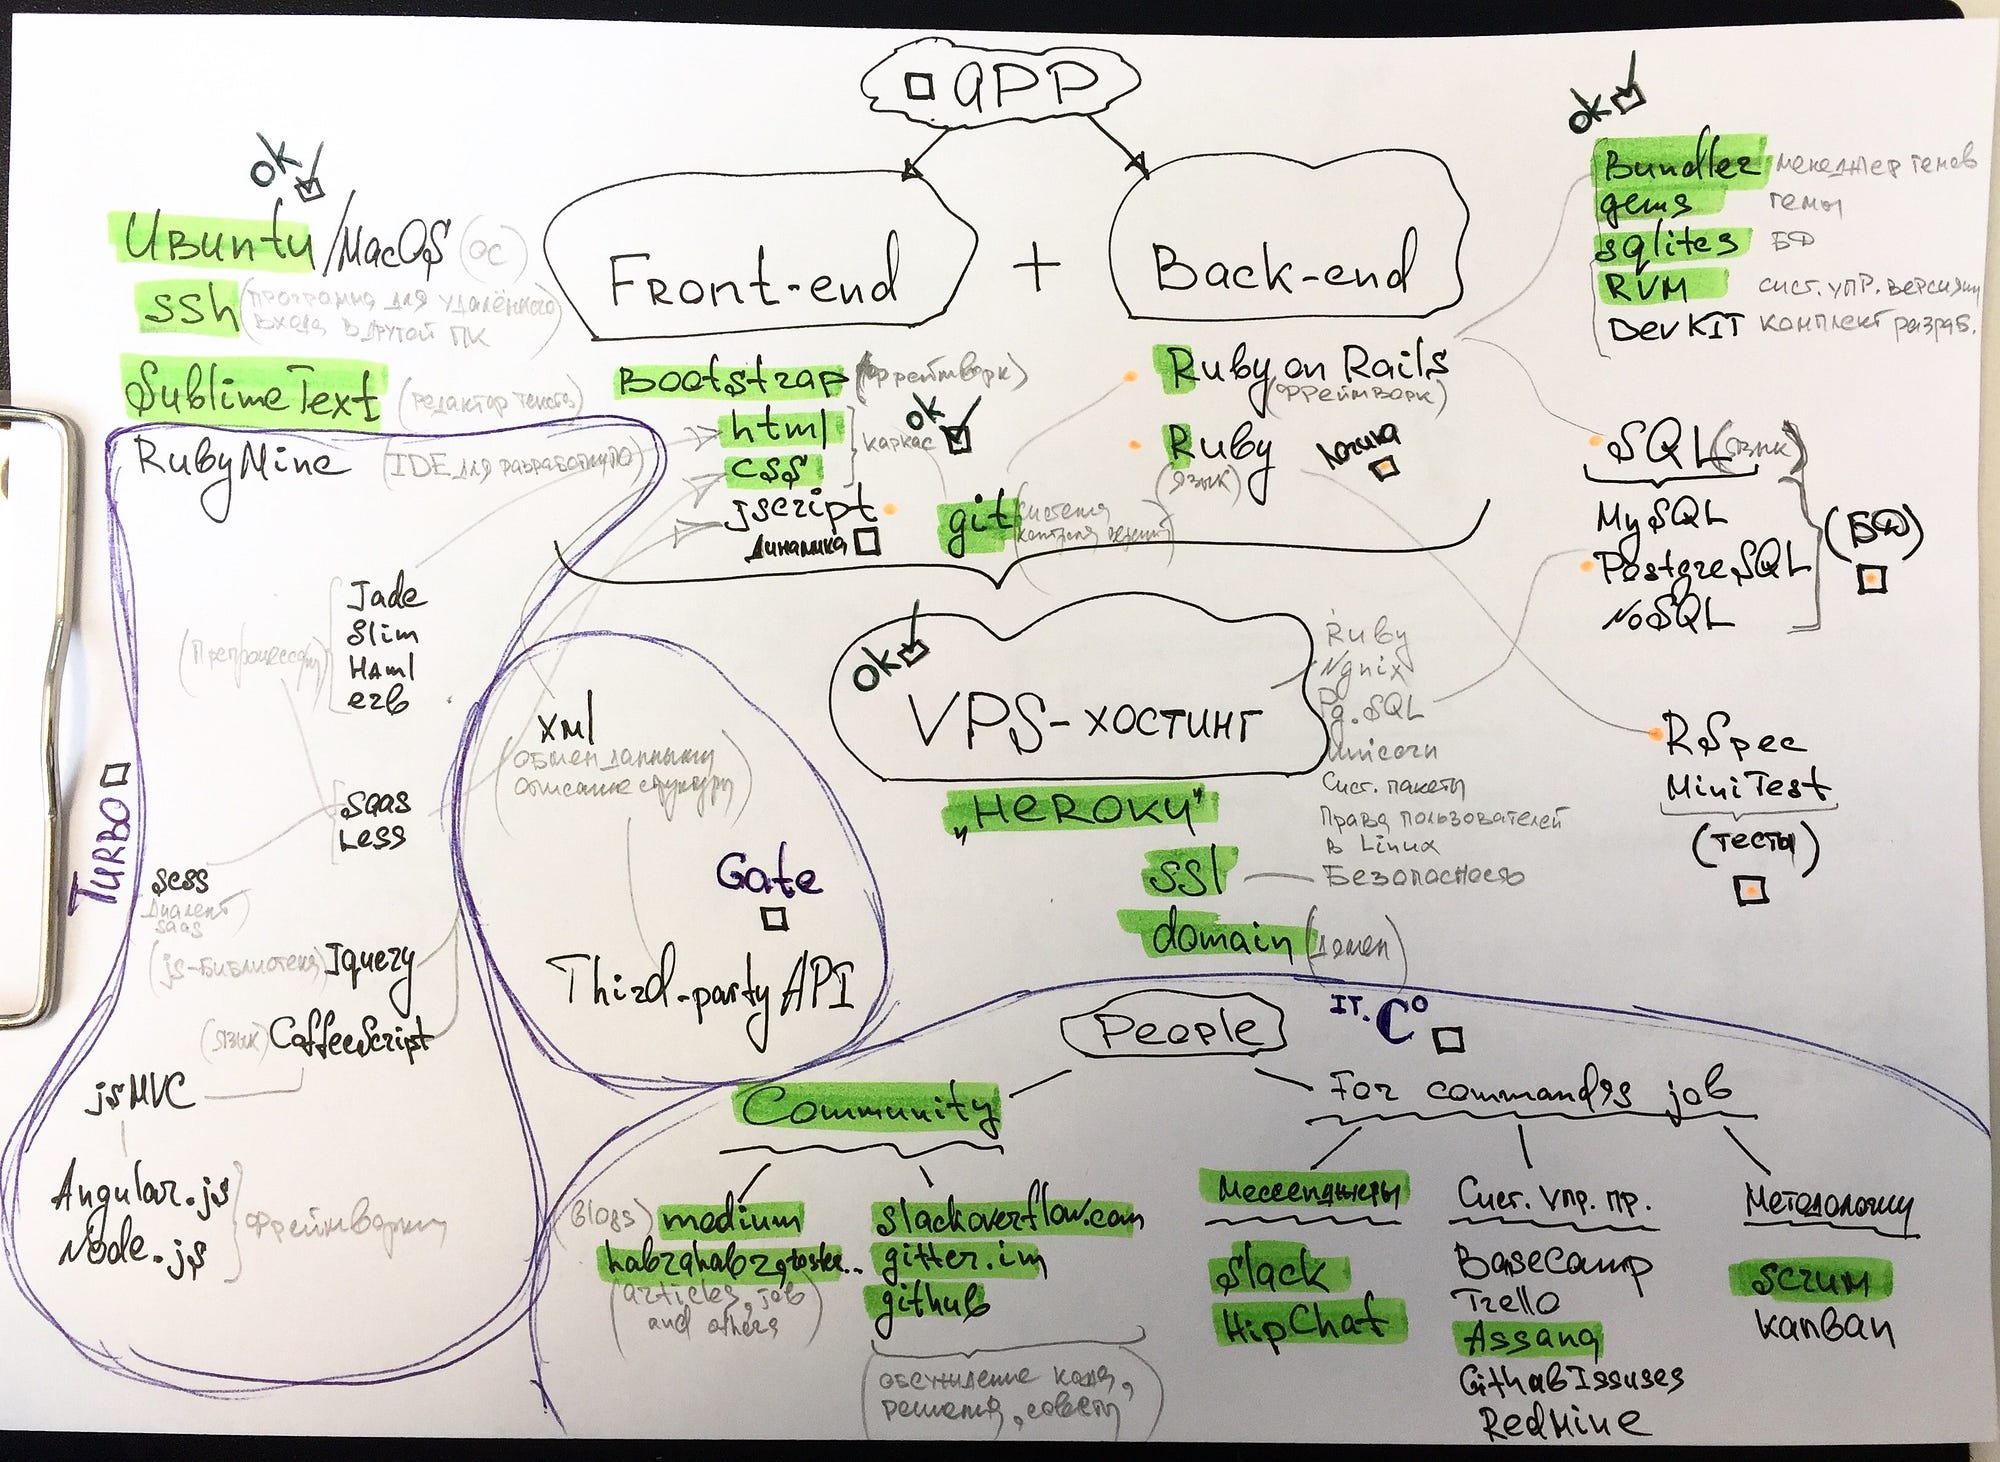 app
Front-end
+
Back-end
ok
Ubuntu/MacOS (ОС)
ssh (программа для удалённого
входа в другой ПК)
Sublime Text (редактор текста)
RubyMine (IDE для разработки ПО)
Bootstrap (фреймворк)
html
css
каркас
ok
jscript
Динамика
git (система
контроля версий)
Ruby on Rails
(фреймворк)
Ruby
(язык)
Логика
ok
Bundler менеджер гемов
gems гемы
sqlites БД
RVM сист. упр. версиями
DevKIT комплект разраб.
SQL (язык)
MySQL
PostgreSQL
NoSQL
(БД)
RSpec
MiniTest
(тесты)
TURBO
(Препроцессоры)
Jade
Slim
Haml
erb
saas
Less
scss
диалект
saas
(js-библиотека) Jquery
(язык) CoffeeScript
jsMVC
Angular.js
Node.js
фреймворки
xml
(обмен данными
описание структуры)
Gate
Third-party API
ok
VPS-хостинг
Ruby
Ngnix
Pg.SQL
Unicorn
Сист. пакеты
Права пользователей
в Linux
„HEROKU"
ssl
Безопасность
domain (домен)
IT.C°
People
Community
(blogs) medium
habrahabr, toster..
(articles, job
and others)
slackoverflow.com
gitter.im
github
(обсуждение кода,
решения, советы)
For commands job
Мессенджеры
Slack
HipChat
Сист. упр. пр.
BaseCamp
Trello
Assana
GithabIssuses
RedMine
Методологии
scrum
kanban